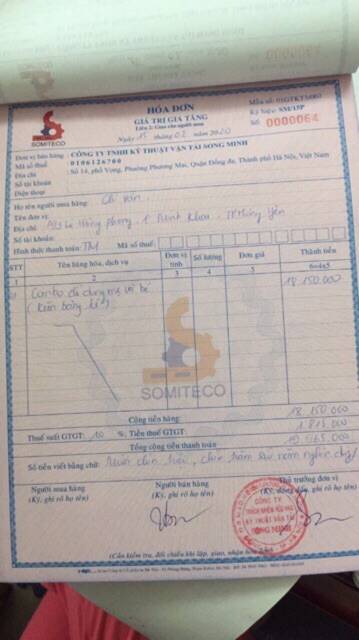 HÓA ĐƠN
GIÁ TRỊ GIA TĂNG
Liên 2: Giao cho người mua
Ngày 15 tháng 02 năm 2020
Mẫu số: 01GTKT3/002
Ký hiệu: SM/15P
Số: 0000064
SOMITECO
Đơn vị bán hàng: CÔNG TY TNHH KỸ THUẬT VẬN TẢI SONG MINH
Mã số thuế: 0106126700
Địa chỉ: Số 14, phố Vọng, Phường Phương Mai, Quận Đống đa, Thành phố Hà Nội, Việt Nam
Số tài khoản:
Điện thoại:
Họ tên người mua hàng: Chị Vân
Tên đơn vị:
Địa chỉ: Lê Hồng Phong, TP Hưng Yên
Số tài khoản:
Hình thức thanh toán: TM Mã số thuế:
STT Tên hàng hóa, dịch vụ Đơn vị tính Số lượng Đơn giá Thành tiền
1 2 3 4 5 6=4x5
Combo đồ dùng mẹ và bé 18 150 000
SOMITECO
Cộng tiền hàng: 18 150 000
Thuế suất GTGT: 10 %; Tiền thuế GTGT: 1 815 000
Tổng cộng tiền thanh toán: 19 965 000
Số tiền viết bằng chữ: Mười chín triệu, chín trăm sáu năm nghìn đồng/
Người mua hàng Người bán hàng Thủ trưởng đơn vị
(Ký, ghi rõ họ tên) (Ký, ghi rõ họ tên) (Ký, đóng dấu, ghi rõ họ tên)
CÔNG TY
TRÁCH NHIỆM HỮU HẠN
KỸ THUẬT VẬN TẢI
SONG MINH
(Cần kiểm tra, đối chiếu khi lập, giao, nhận hóa đơn)